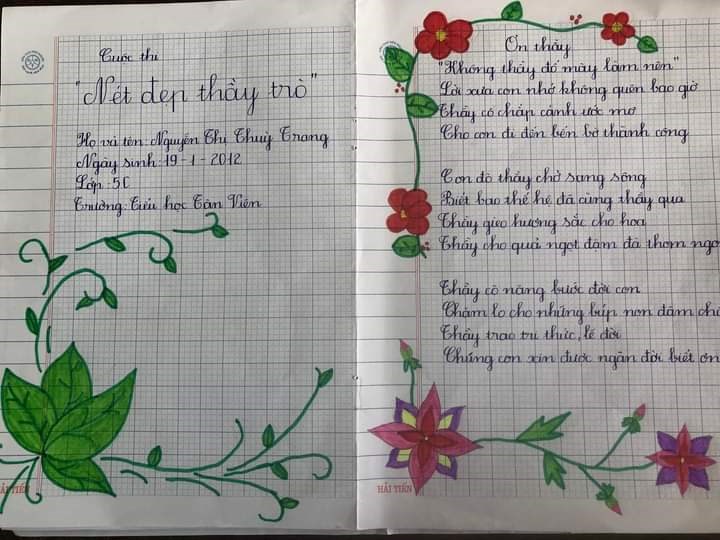 Cuộc thi
"Nét đẹp thầy trò"
Họ và tên: Nguyễn Thị Thuỳ Trang
Ngày sinh: 19-1-2012
Lớp: 5C
Trường: Tiểu học Tân Viên
HẢI TIẾN
Ơn thầy
"Không thầy đố mày làm nên"
Lời xưa con nhớ không quên bao giờ
Thầy cô chắp cánh ước mơ
Cho con đi đến bến bờ thành công
Con đò thầy chở sang sông
Biết bao thế hệ đã cùng thầy qua
Thầy gieo hương sắc cho hoa
Thầy cho quả ngọt đậm đà thơm
Thầy cô nâng bước đời con
Chăm lo cho những búp non đâm
Thầy trao tri thức, lẽ đời
Chúng con xin được ngàn đời biết ơn
HẢI TIẾN